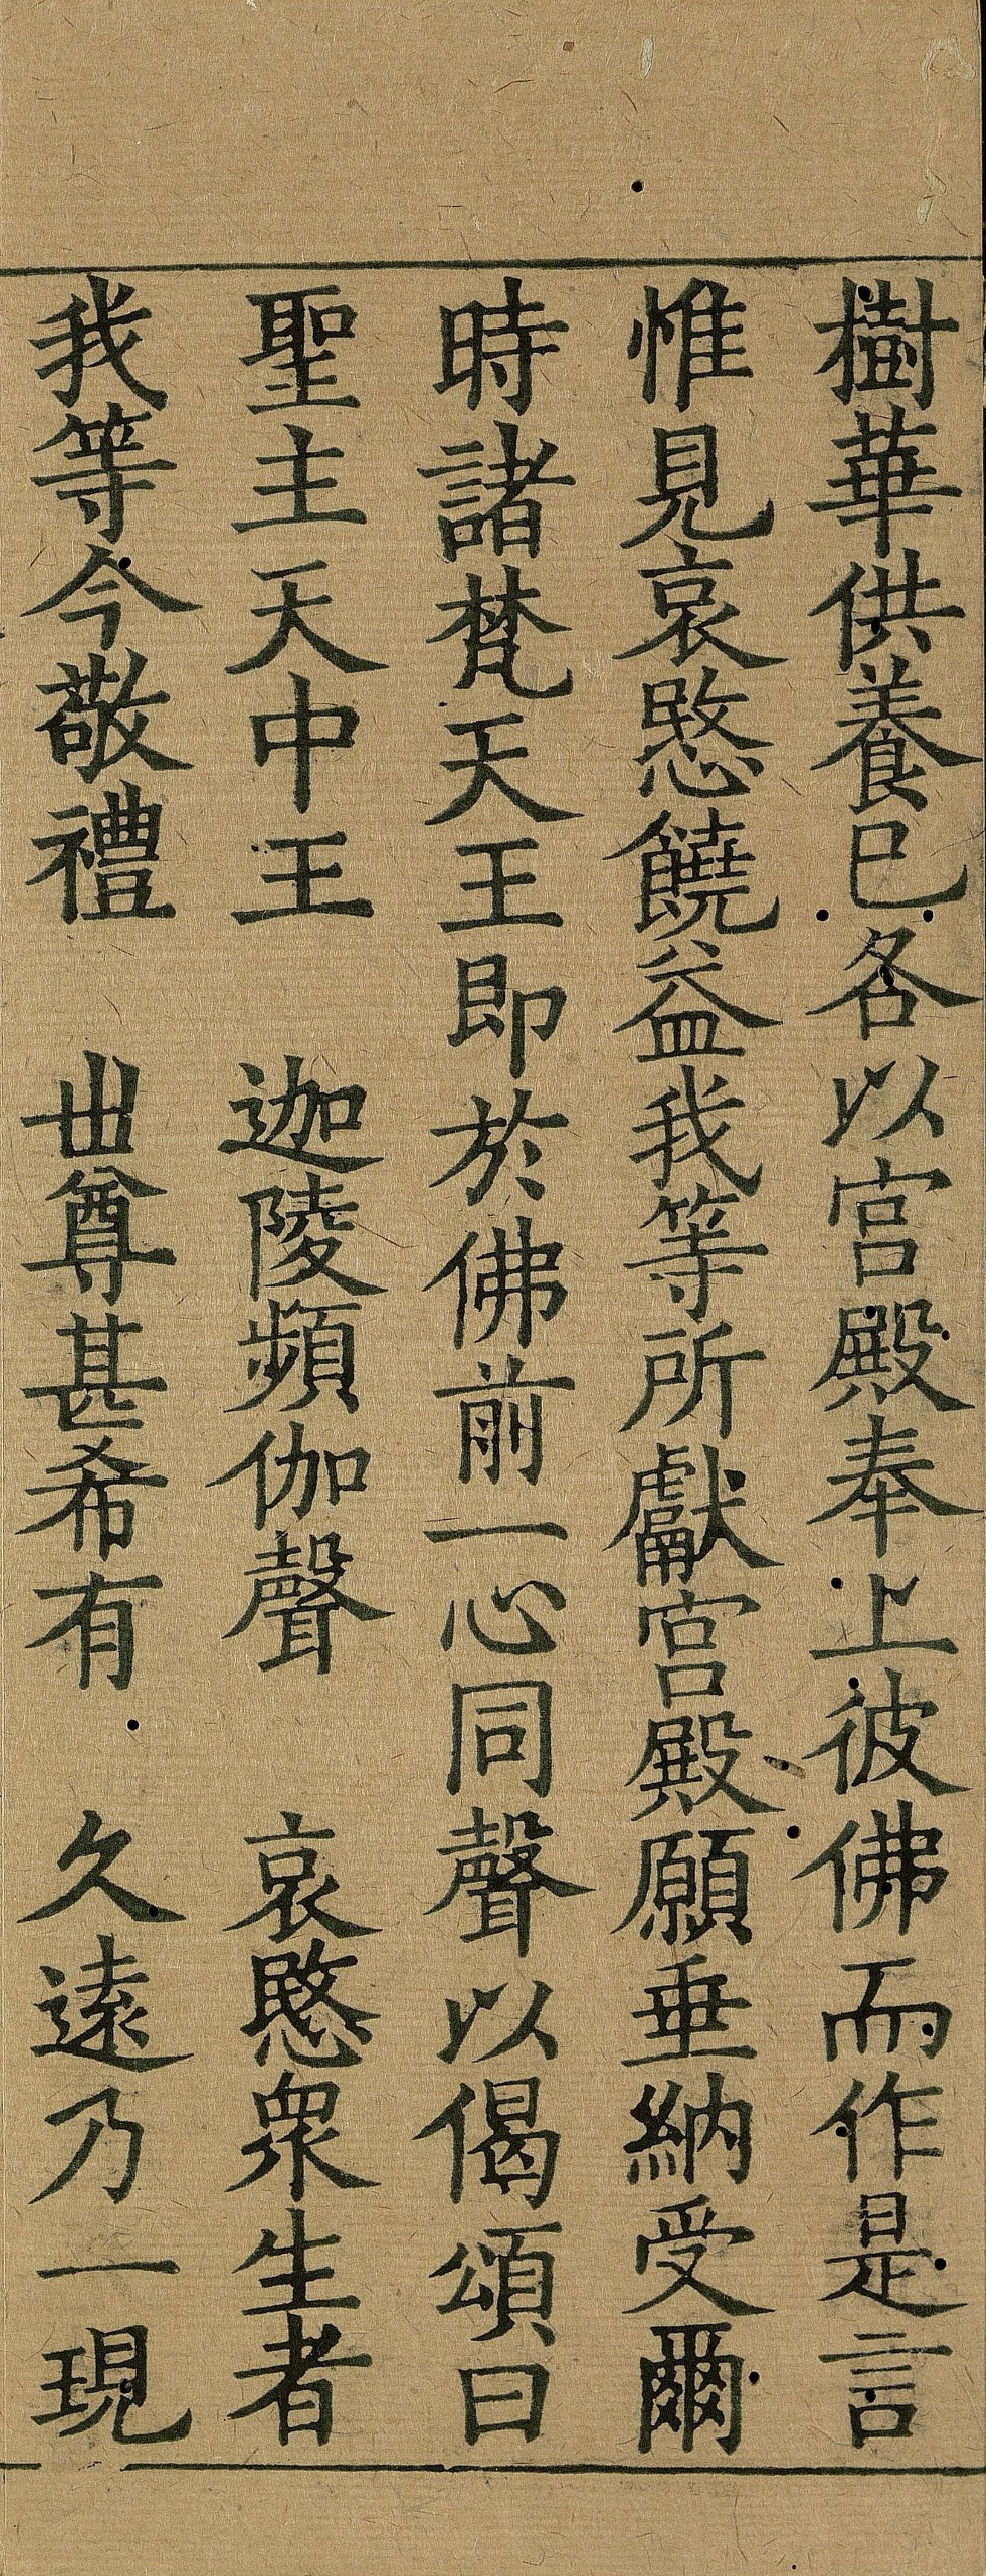 樹華供養已各以宮殿奉上彼佛而作是言
惟見哀愍饒益我等所獻宮殿願垂納受爾
時諸梵天王即於佛前一心同聲以偈頌曰
聖主天中王　迦陵頻伽聲　哀愍眾生者
我等今敬禮　世尊甚希有　久遠乃一現